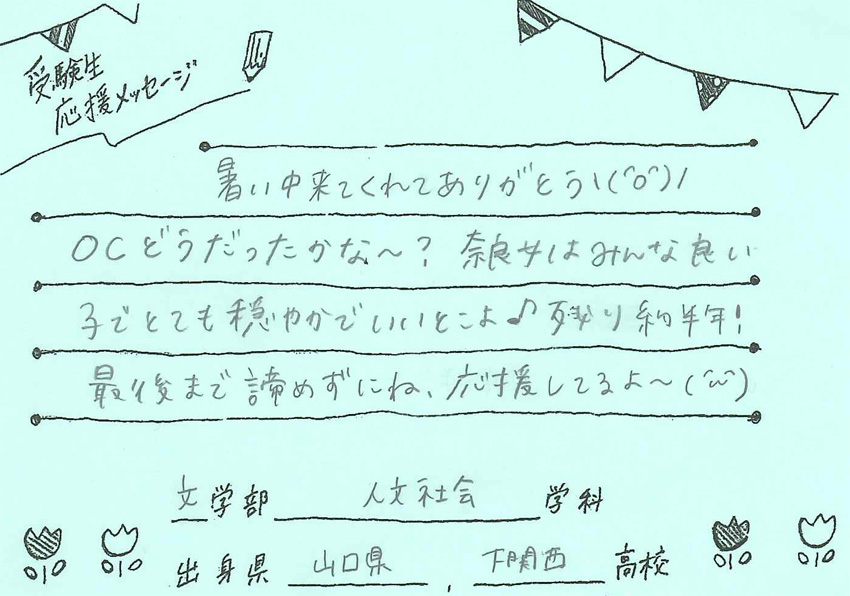 受験生
応援メッセージ
暑い中来てくれてありがとう\(^o^)/
OCどうだったかな～？ 奈良女はみんな良い
子でとても穏やかでいいとこよ♪残り約半年！
最後まで諦めずにね、応援してるよ～(^ω^)
文学部 人文社会 学科
出身県 山口県 , 下関西 高校